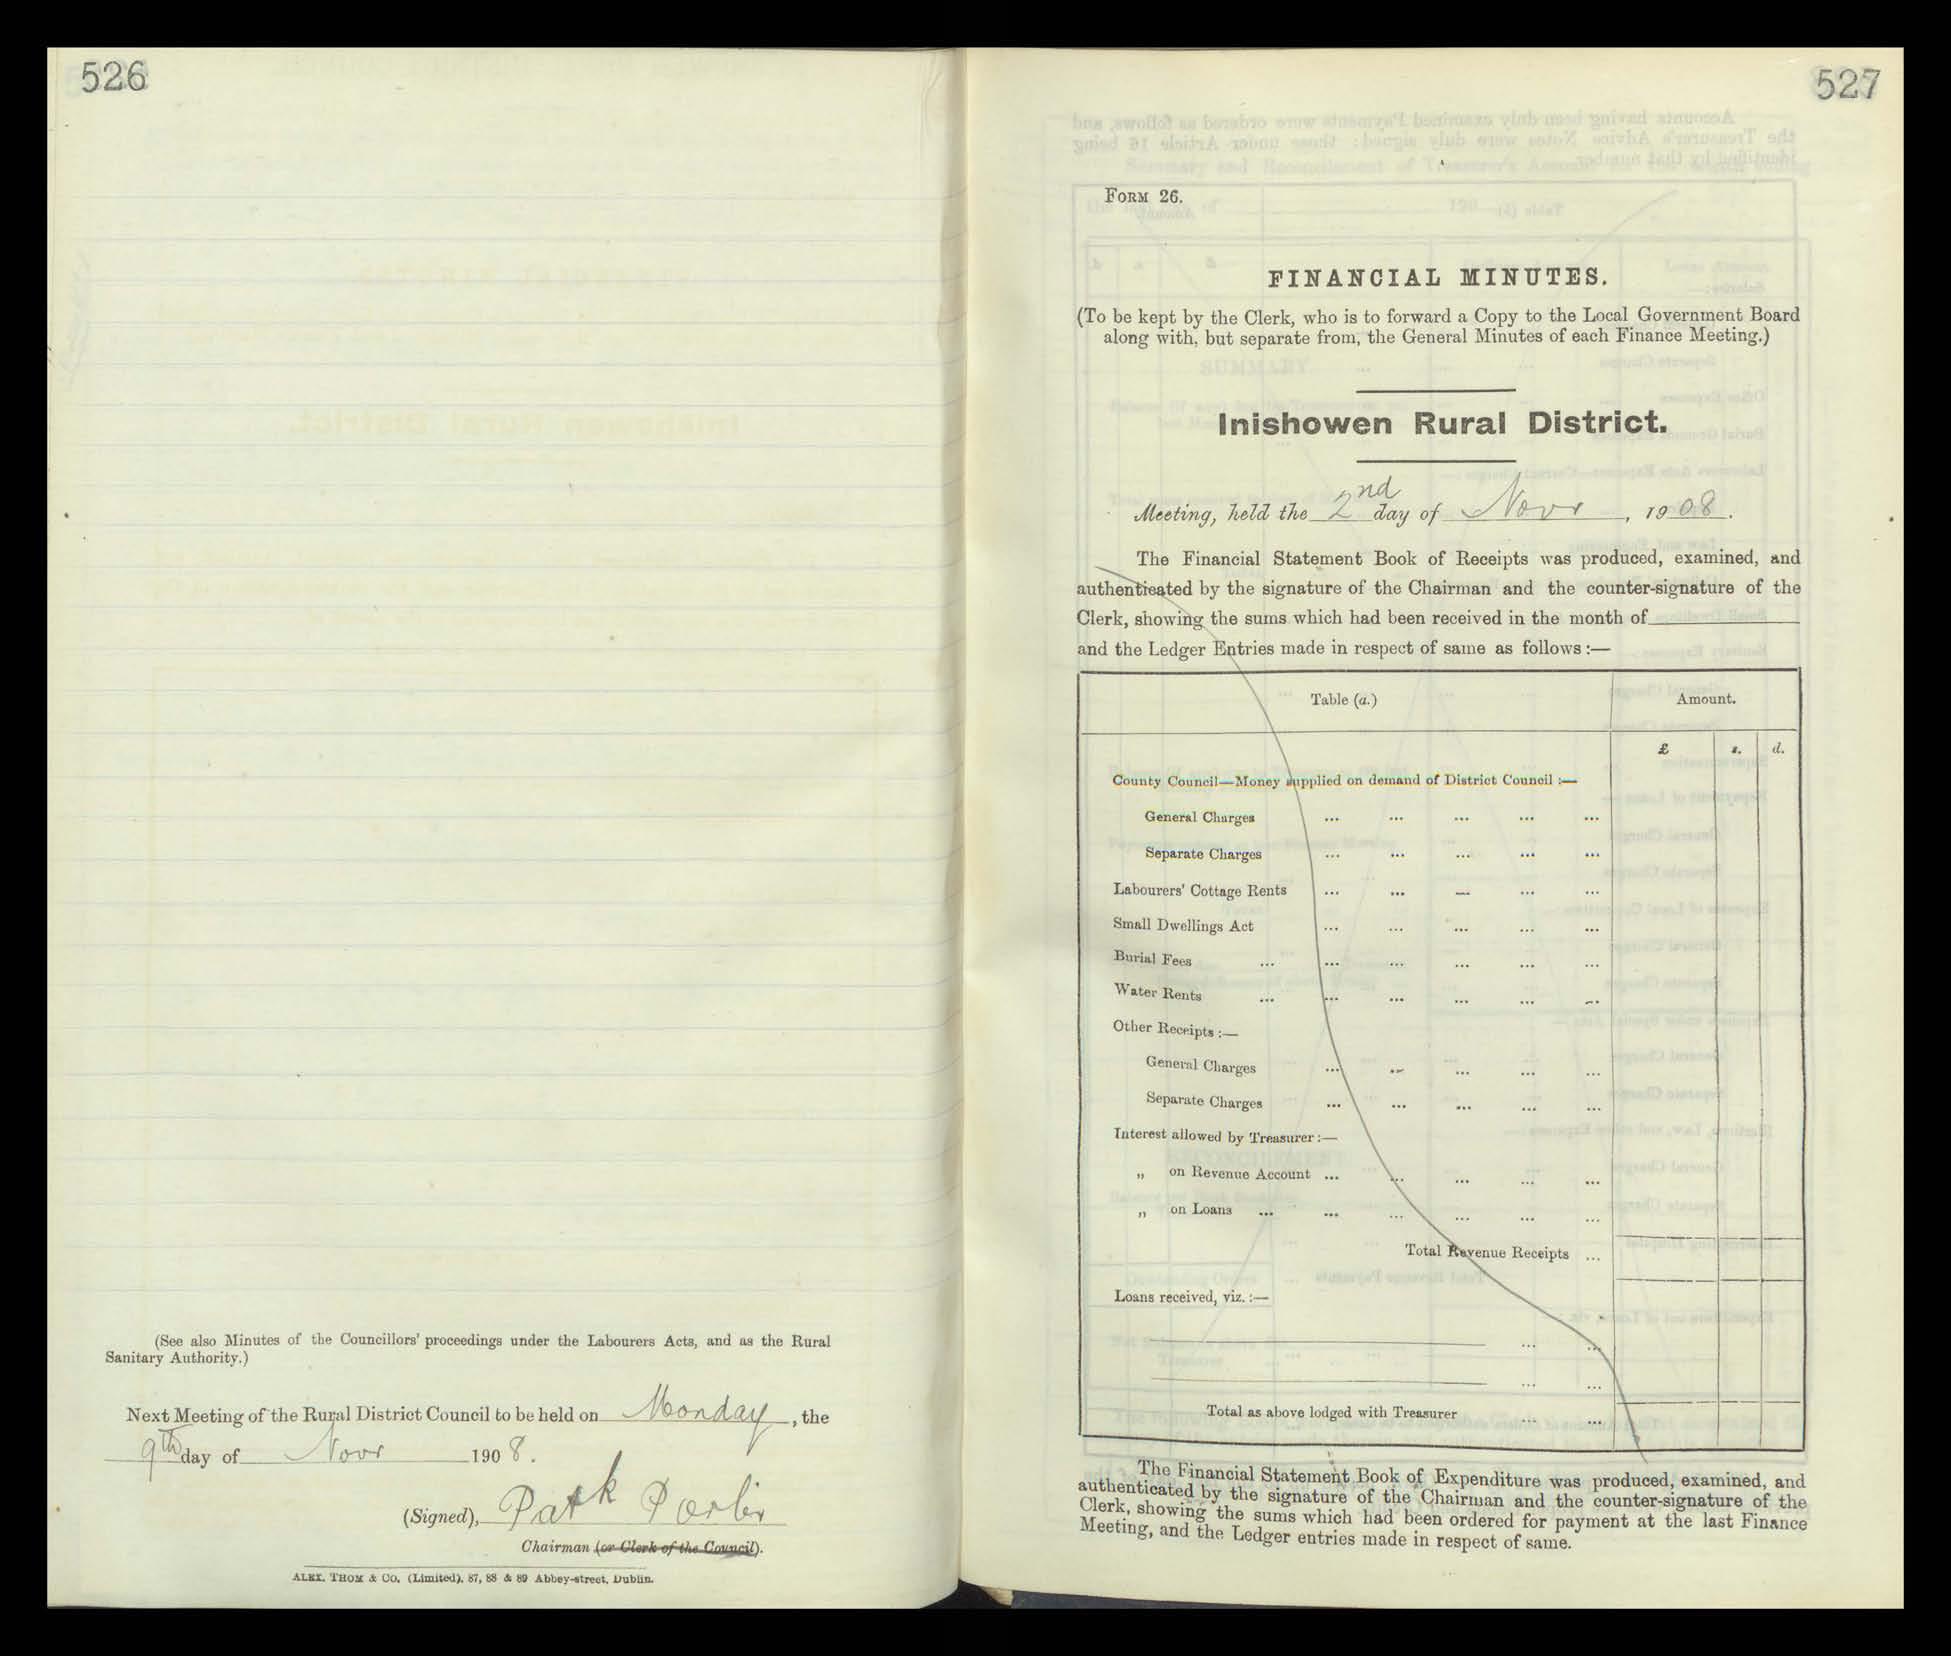 526
(See also Minutes of the Councillors' proceedings under the Labourers Acts, and as the Rural
Sanitary Authority.)
Next Meeting of the Rural District Council to be held on Monday, the
9th day of Novr 1908.
(Signed), Patk
Chairman (or Clerk of the Council).
ALEX. THOM & CO. (Limited), 87, 88 & 89 Abbey-street, Dublin.
527
FORM 26.
FINANCIAL MINUTES.
(To be kept by the Clerk, who is to forward a Copy to the Local Government Board
along with, but separate from, the General Minutes of each Finance Meeting.)
Inishowen Rural District.
Meeting, held the 2nd day of Novr, 1908.
The Financial Statement Book of Receipts was produced, examined, and
authenticated by the signature of the Chairman and the counter-signature of the
Clerk, showing the sums which had been received in the month of
and the Ledger Entries made in respect of same as follows:—
Table (a.) Amount.
£ s. d.
County Council—Money supplied on demand of District Council :—
General Charges ... ... ... ... ...
Separate Charges ... ... ... ... ...
Labourers' Cottage Rents ... ... ... ... ...
Small Dwellings Act ... ... ... ... ...
Burial Fees ... ... ... ... ... ...
Water Rents ... ... ... ... ... ...
Other Receipts :—
General Charges ... ... ... ... ...
Separate Charges ... ... ... ... ...
Interest allowed by Treasurer :—
„ on Revenue Account ... ... ... ... ...
„ on Loans ... ... ... ... ... ...
Total Revenue Receipts ...
Loans received, viz. :—
... ...
... ...
Total as above lodged with Treasurer ... ...
The Financial Statement Book of Expenditure was produced, examined, and
authenticated by the signature of the Chairman and the counter-signature of the
Clerk, showing the sums which had been ordered for payment at the last Finance
Meeting, and the Ledger entries made in respect of same.